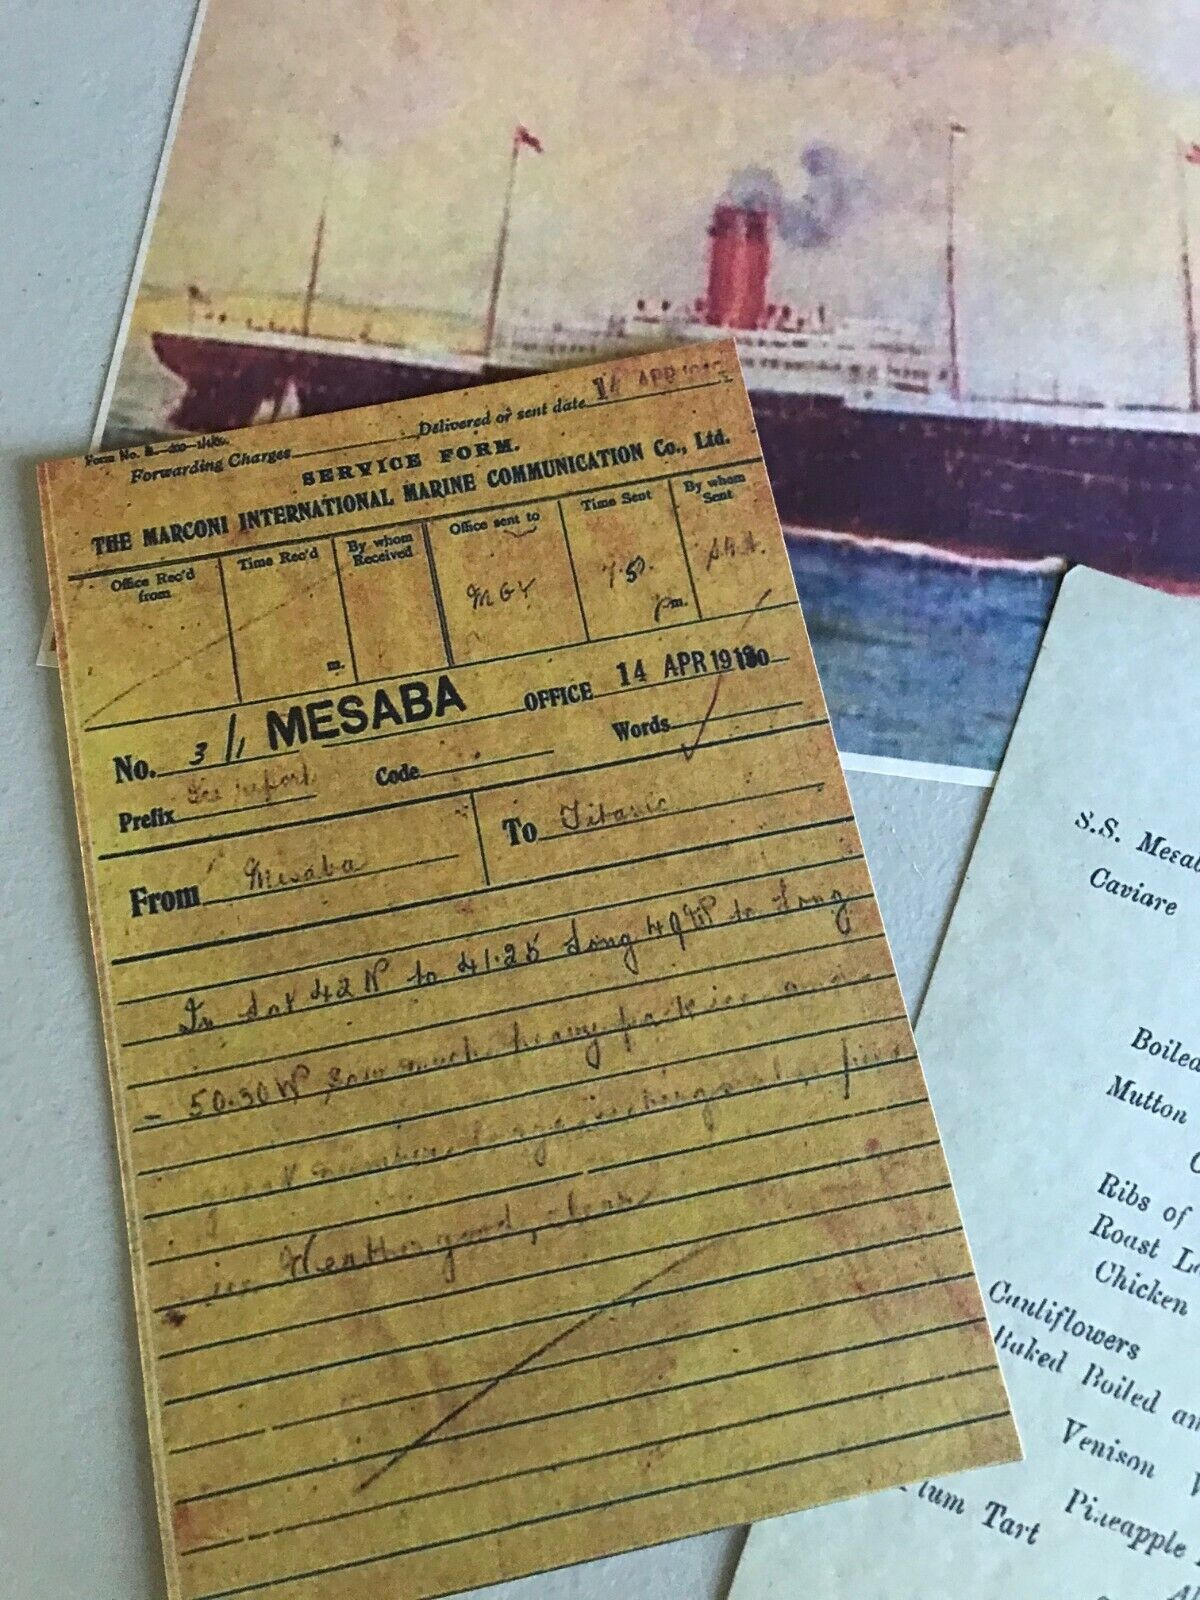 Form No.
Forwarding Charges Delivered or sent date 14 APR 1912
SERVICE FORM.
THE MARCONI INTERNATIONAL MARINE COMMUNICATION Co., Ltd.
Office Rec'd from
Time Rec'd
By whom Received
Office sent to
Time Sent
By whom Sent
m.
MGY
7.50 pm.
No. 3/1 MESABA OFFICE 14 APR 1912
Prefix Ice report Code Words
From Mesaba To Titanic
In Lat 42 N to 41.25 Long 49 W to Long
50.30 W Saw much heavy pack ice and
great number large icebergs also field
ice Weather good, clear
S.S. Mesab
Caviare
Boiled
Mutton
C
Ribs of
Roast L
Chicken
Cauliflowers
Baked Boiled an
Venison
Plum Tart Pineapple